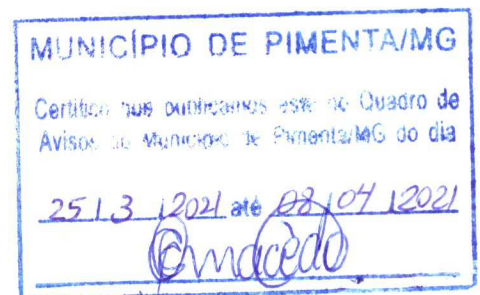 MUNICÍPIO DE PIMENTA/MG
Certifico que publicamos este no Quadro de
Avisos do Município de Pimenta/MG do dia
25/3/2021 até 08/04/2021
Emacedo